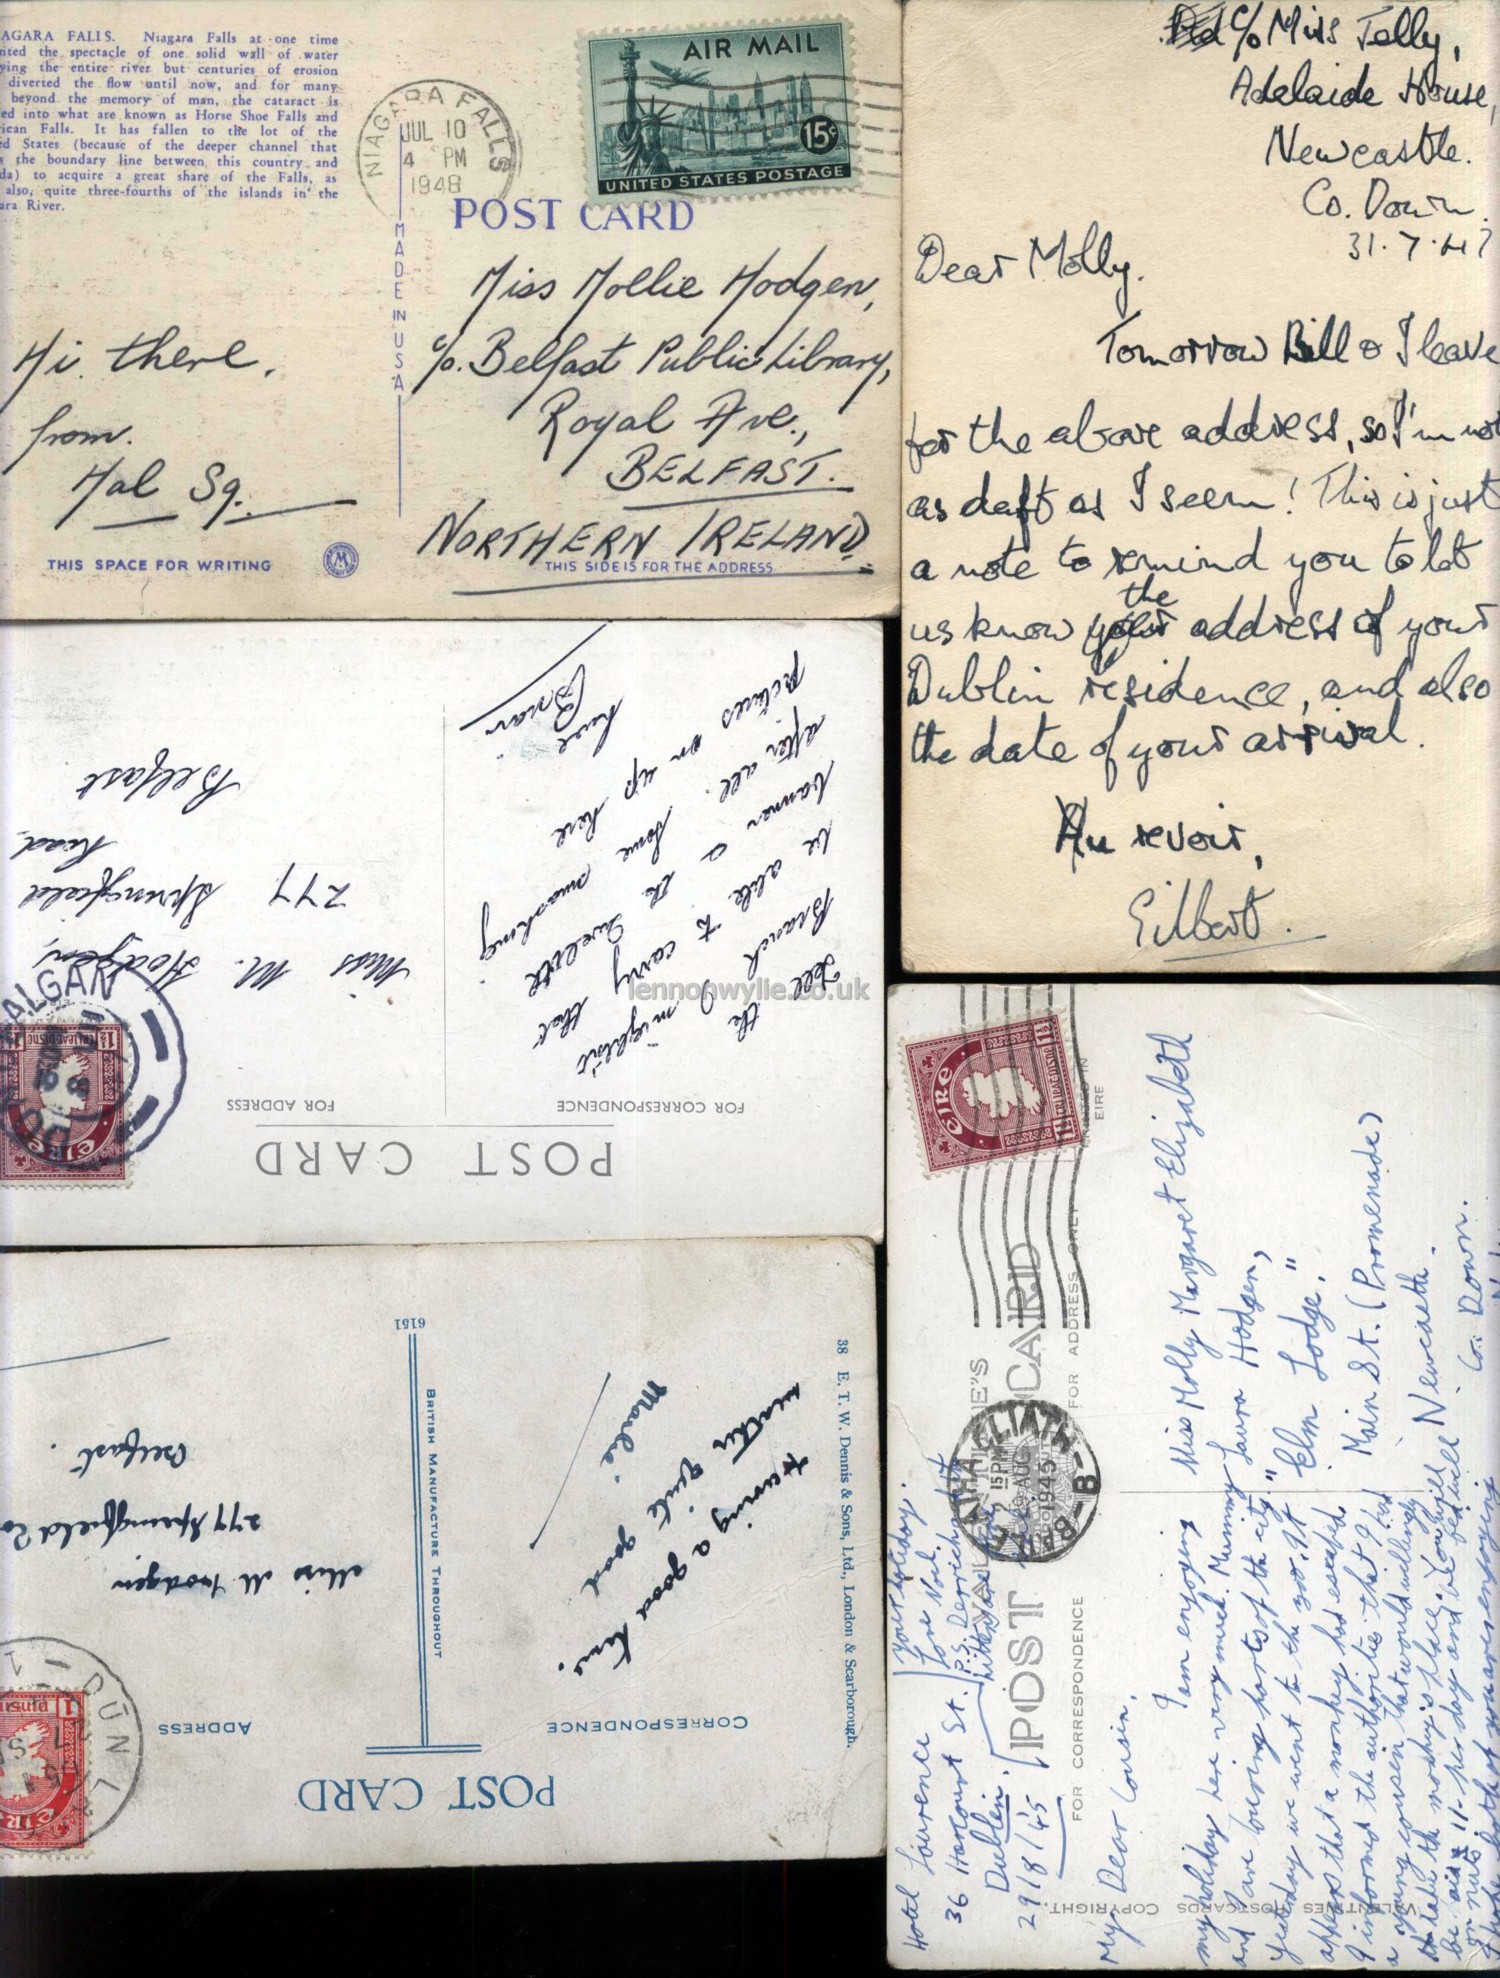 AGARA FALLS. Niagara Falls at one time
ited the spectacle of one solid wall of water
ying the entire river but centuries of erosion
diverted the flow until now, and for many
beyond the memory of man, the cataract is
ed into what are known as Horse Shoe Falls and
ican Falls. It has fallen to the lot of the
ed States (because of the deeper channel that
s the boundary line between this country and
da) to acquire a great share of the Falls, as
also, quite three-fourths of the islands in the
ara River.
NIAGARA FALLS
JUL 10
4 PM
1948
AIR MAIL
15¢
UNITED STATES POSTAGE
POST CARD
MADE IN USA
Hi there,
from.
Hal Sq.
THIS SPACE FOR WRITING
Miss Mollie Hodgen,
c/o. Belfast Public Library,
Royal Ave.,
BELFAST.
NORTHERN IRELAND.
THIS SIDE IS FOR THE ADDRESS
c/o Miss Jelly,
Adelaide House,
Newcastle.
Co. Down.
31.7.47
Dear Molly.
Tomorrow Bill & I leave
for the above address, so I'm not
as daft as I seem! This is just
a note to remind you to let
us know the address of your
Dublin residence, and also
the date of your arrival.
Au revoir,
Gilbert.
POST CARD
FOR CORRESPONDENCE
FOR ADDRESS
Tell the
Branch I might
be able to carry that
banner on the Twelfth
after all. Some smashing
pictures on up here
love
Brian
Miss M. Hodgen,
277 Springfield
Road,
Belfast
EIRE
lennonwylie.co.uk
POST CARD
CORRESPONDENCE
ADDRESS
Having a good time.
weather quite good
Marlie.
Miss M Hodgen
277 Springfield Rd
Belfast.
BRITISH MANUFACTURE THROUGHOUT
6151
38 E. T. W. Dennis & Sons, Ltd., London & Scarborough.
DÚN L
EIRE
POST CARD
VALENTINE'S
FOR CORRESPONDENCE
FOR ADDRESS ONLY
PRINTED IN EIRE
VALENTINES POSTCARDS COPYRIGHT.
EIRE
BAILE ÁTHA CLIATH
15 PM
29 AUG
1945
Hotel Lawrence
36 Harcourt St.
Dublin.
29/8/45
My Dear Cousin,
I am enjoying
my holiday here very much. Mummy
and I are touring parts of the city.
Yesterday we went to the zoo. It
appears that a monkey had escaped
I informed the authorities that I had
a young cousin that would willingly
take the monkey's place. You will
be paid 11/- per day and be fed well
on nuts.
I hope both of you are enjoying
your holiday.
Love Noel.
Miss Molly Margaret Elizabeth
Laura Hodgen,
"Elm Lodge."
Main St. (Promenade)
Newcastle.
Co. Down.